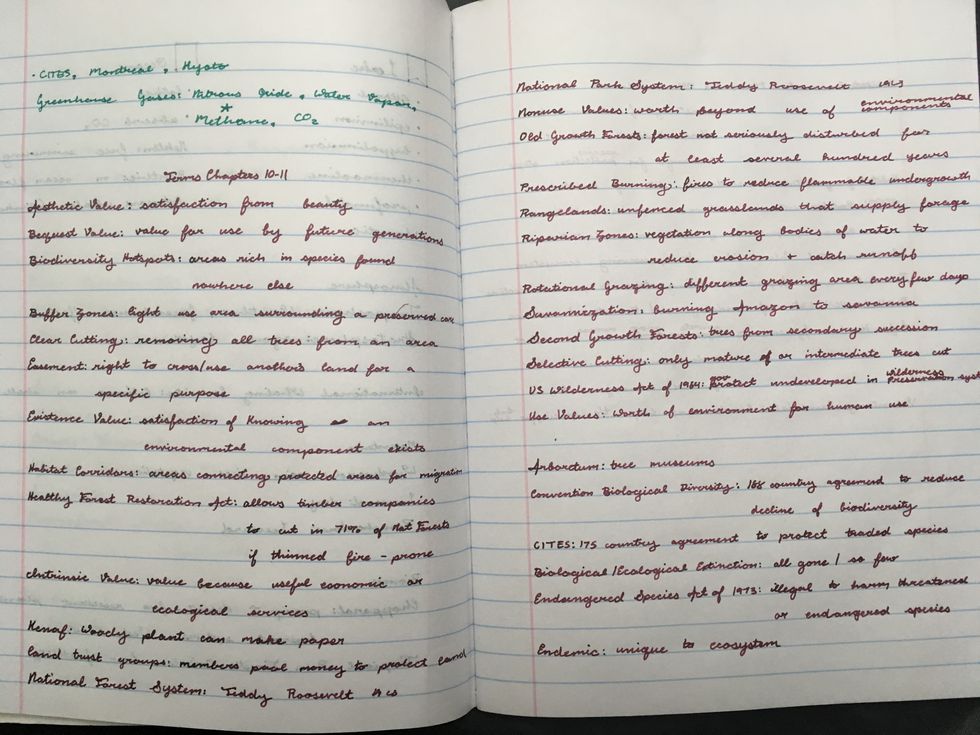 · CITES, Montreal, Kyoto
Greenhouse Gases: Nitrous Oxide, Water Vapor,
*
Methane, CO2
Terms Chapters 10-11
Aesthetic Value: satisfaction from beauty
Bequest Value: value for use by future generations
Biodiversity Hotspots: areas rich in species found
nowhere else
Buffer Zones: light use area surrounding a preserved core
Clear Cutting: removing all trees from an area
Easement: right to cross/use another's land for a
specific purpose
Existence Value: satisfaction of knowing an
environmental component exists
Habitat Corridors: areas connecting protected areas for migration
Healthy Forest Restoration Act: allows timber companies
to cut in 71% of Nat Forests
if thinned fire-prone
Intrinsic Value: value because useful economic or
ecological services
Kenaf: woody plant can make paper
land trust groups: members pool money to protect land
National Forest System: Teddy Roosevelt
National Park System: Teddy Roosevelt
Nonuse Values: worth beyond use of environmental
components
Old Growth Forests: forest not seriously disturbed for
at least several hundred years
Prescribed Burning: fires to reduce flammable undergrowth
Rangelands: unfenced grasslands that supply forage
Riparian Zones: vegetation along bodies of water to
reduce erosion + catch runoff
Rotational Grazing: different grazing area every few days
Savannization: burning Amazon to savanna
Second Growth Forests: trees from secondary succession
Selective Cutting: only mature or intermediate trees cut
US Wilderness Act of 1964: gov protect undeveloped in wilderness
preservation syst
Use Values: Worth of environment for human use
Arboretum: tree museums
Convention Biological Diversity: 188 country agreement to reduce
decline of biodiversity
CITES: 175 country agreement to protect traded species
Biological/Ecological Extinction: all gone / so few
Endangered Species Act of 1973: illegal to harm threatened
or endangered species
Endemic: unique to ecosystem